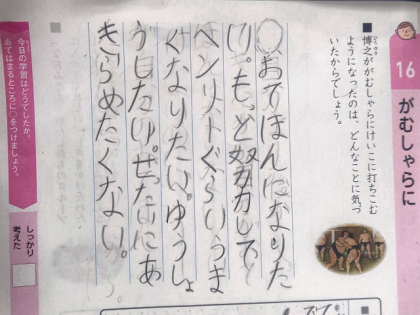 16
がむしゃらに
■博之ががむしゃらにけいこに打ちこむ
ようになったのは、どんなことに気づ
いたからでしょう。
おてほんになりた
い。もっと努力して
ヘンリートぐらいうま
くなりたい。ゆうしょ
うしたい。ぜったいにあ
きらめたくない。
今日の学習はどうでしたか。
あてはまるところに○をつけましょう。
しっかり
考えた